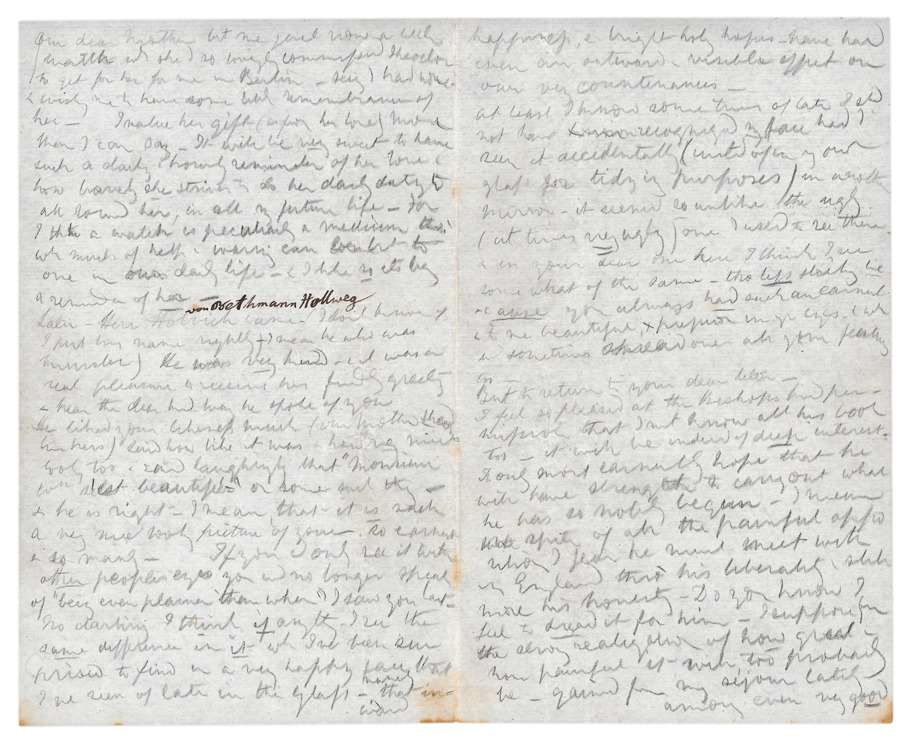 Our dear Mother but me quel none a little
(watch wh she) so lovingly commissioned Theodor
to get for her for me in Berlin - seeing I had none
& wish me to have some little remembrance of
her - I value her gift (upon her love) more
than I can say - It will be very sweet to have
such a daily & hourly reminder of her love &
how bravely she strives to do her daily duty to
all round her, in all my future life - For
I think a watch is peculiarly a medium thro'
wh much of help & warning can come to
one in daily life - & I like so its being
a reminder of her -
von Bethmann Hollweg
Later - Herr came - I don't know if
I put his name rightly - (I mean he who was
minister) He was very kind - it was a
real pleasure to receive his kindly greeting
& hear the dear kind way he spoke of you
He liked your likeness much (our Mother
) said how like it was - 
too - & said laughingly that "Monsieur
c'est beautiful" or some such thing -
& he is right - I mean that it is such
a very nice picture of yours. So earnest
& so manly - If you cd only see it with
other peoples eyes you wd no longer speak
of "being even plainer than when" I saw you last -
No darling I think if anyth. I see the
same difference in "it" wh I've been sur-
prised to find in a very happy face that
I've seen of late in the glass - that in-
ward
happiness, & bright holy hopes - have had
even an outward & visible effect on
our very countenances -
at least I know some times of late I shd
not have recognized my face had I
seen it accidentally (until upon my own
glass for tidying purposes) in another
mirror - it seemed so unlike the ugly
(at times very ugly) one I used to see there -
& in your dear one here I think I see
some what of the same - tho less partly be-
cause you always had such an earnest
& to me beautiful expression in yr eyes, & wh
sometimes over all your features
But to return to your dear letter -
I feel so pleased at the Bishop's kind per-
mission that I must know all his book
too - it will be indeed of deep interest -
I only most earnestly hope that he
will have strength to carry out what
he has so nobly begun - I mean
in spite of all the painful oppo
which I fear he must meet with
in England thro' his liberality & still
more his honesty - Do you know I
feel to dread it for him - I suppose from
the strong realization of how great -
how painful it will, too probably
be - gained from my sejour lately
among even very good